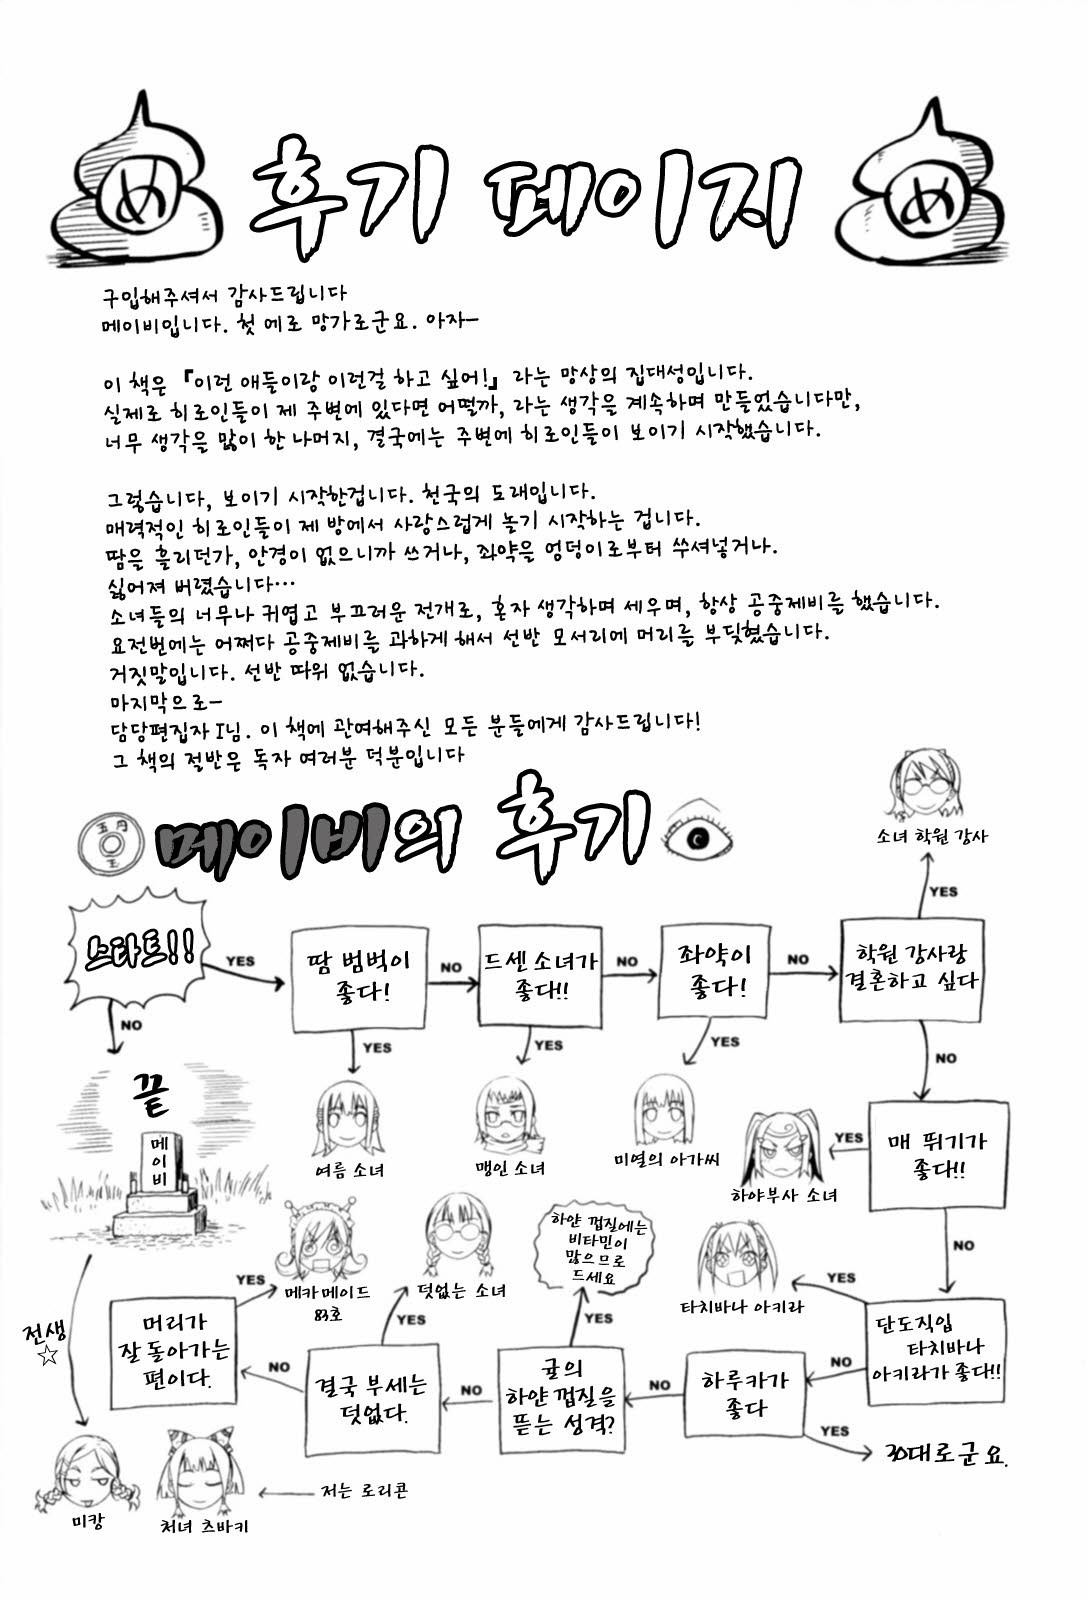 め
후기 페이지
め
구입해주셔서 감사드립니다
메이비입니다. 첫 에로 망가로군요. 아자-
이 책은 『이런 애들이랑 이런걸 하고 싶어!』 라는 망상의 집대성입니다.
실제로 히로인들이 제 주변에 있다면 어떨까, 라는 생각을 계속하며 만들었습니다만,
너무 생각을 많이 한 나머지, 결국에는 주변에 히로인들이 보이기 시작했습니다.
그렇습니다, 보이기 시작한겁니다. 천국의 도래입니다.
매력적인 히로인들이 제 방에서 사랑스럽게 놀기 시작하는 겁니다.
땀을 흘리던가, 안경이 없으니까 쓰거나, 좌약을 엉덩이로부터 쑤셔넣거나.
싫어져 버렸습니다…
소녀들의 너무나 귀엽고 부끄러운 전개로, 혼자 생각하며 세우며, 항상 공중제비를 했습니다.
요전번에는 어쩌다 공중제비를 과하게 해서 선반 모서리에 머리를 부딪혔습니다.
거짓말입니다. 선반 따위 없습니다.
마지막으로-
담당편집자 I님. 이 책에 관여해주신 모든 분들에게 감사드립니다!
그 책의 절반은 독자 여러분 덕분입니다
소녀 학원 강사
메이비의 후기
YES
스타트!!
YES
땀 범벅이
좋다!
NO
드센 소녀가
좋다!!
NO
좌약이
좋다!
NO
학원 강사랑
결혼하고 싶다
NO
YES
YES
YES
NO
끝
메이비
여름 소녀
맹인 소녀
미열의 아가씨
하야부사 소녀
YES
매 뛰기가
좋다!!
NO
메카메이드
83호
덧없는 소녀
하얀 껍질에는
비타민이
많으므로
드세요
타치바나 아키라
YES
단도직입
타치바나
아키라가 좋다!!
NO
하루카가
좋다
YES
30대로군요.
NO
귤의
하얀 껍질을
뜯는 성격?
YES
NO
결국 부세는
덧없다.
YES
NO
머리가
잘 돌아가는
편이다.
YES
전생
☆
미캉
처녀 츠바키
저는 로리콘